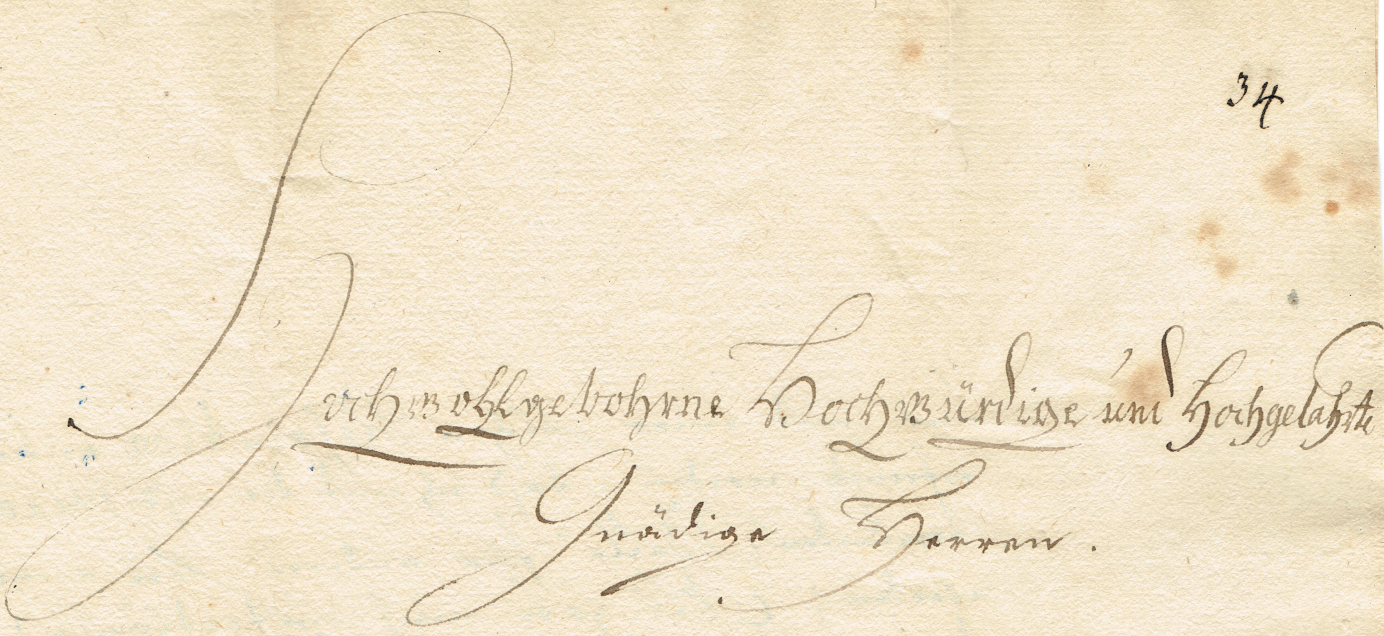 34
Hochwohlgebohrne Hochwürdige und Hochgelahrte
Gnädige Herren.